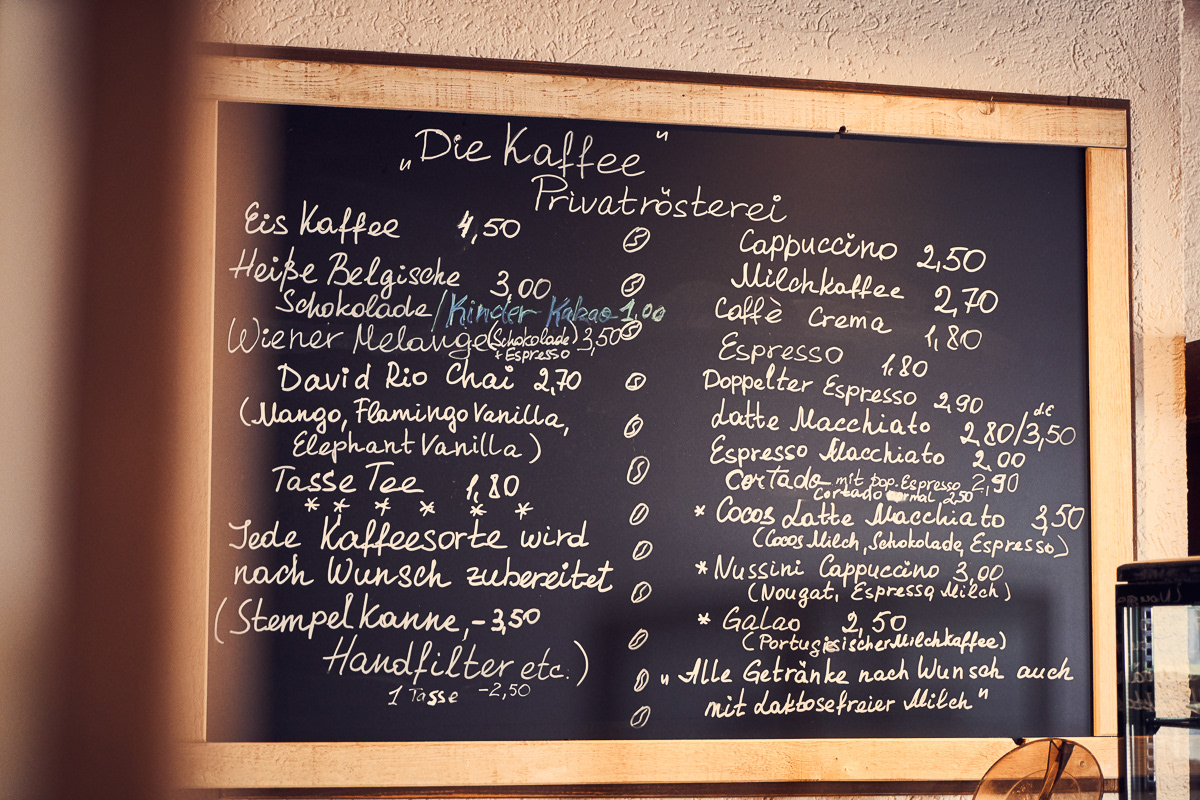 „Die Kaffee"
Privatrösterei
Eis Kaffee 4,50
Heiße Belgische 3,00
Schokolade/Kinder Kakao 1,00
Wiener Melange (Schokolade) 3,50
+ Espresso
David Rio Chai 2,70
(Mango, Flamingo Vanilla,
Elephant Vanilla)
Tasse Tee 1,80
* * * * * *
Jede Kaffeesorte wird
nach Wunsch zubereitet
(Stempelkanne, - 3,50
Handfilter etc.)
1 Tasse - 2,50
Cappuccino 2,50
Milchkaffee 2,70
Caffè Crema 1,80
Espresso 1,80
Doppelter Espresso 2,90
d.c
Latte Macchiato 2,80/3,50
Espresso Macchiato 2,00
Cortado mit dop. Espresso 2,90
Cortado normal 2,50
* Cocos Latte Macchiato 3,50
(Cocos Milch, Schokolade, Espresso)
* Nussini Cappuccino 3,00
(Nougat, Espresso, Milch)
* Galao 2,50
(Portugisischer Milchkaffee)
„Alle Getränke nach Wunsch auch
mit Laktosefreier Milch"